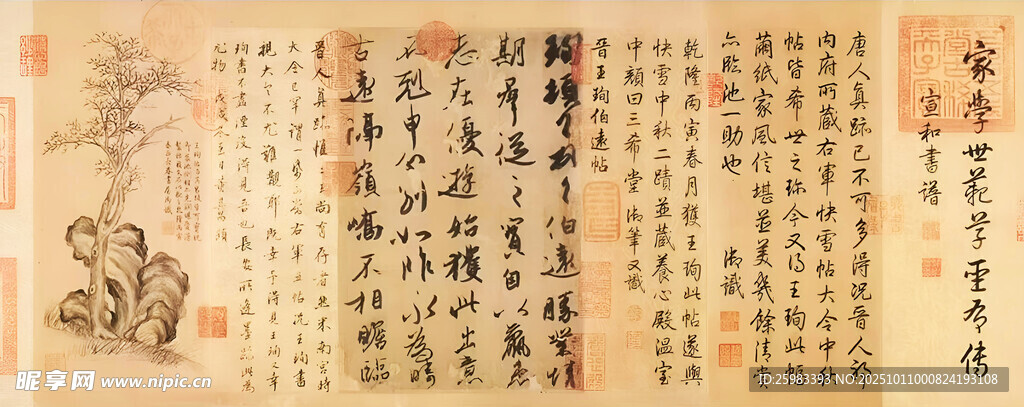 家學世範草聖有傳
宣和書譜
唐人真跡已不可多得況晉人耶
內府所藏右軍快雪帖大令中秋
帖皆希世之珍今又得王珣此幅
繭紙家風信堪並美幾餘清賞
亦臨池一助也 御識
乾隆丙寅春月獲王珣此帖遂與
快雪中秋二蹟並藏養心殿溫室
中顏曰三希堂 御筆又識
晉王珣伯遠帖
珣頓首頓首伯遠勝業情
期群從之寶自以羸患
志在優遊始獲此出意
不剋申分別如昨永為疇
古遠隔嶺嶠不相瞻臨
晉人真跡惟二王尚有存者然米南宮時
大令已罕謂一紙可當右軍五帖況王珣書
視大令不尤難覯耶既幸予得見王珣又幸
珣書不盡湮沒得見吾也長安所逢墨跡此為
尤物 戊戌冬至日董其昌題
昵享网 www.nipic.cn
ID:25983393 NO:20251011000824193108